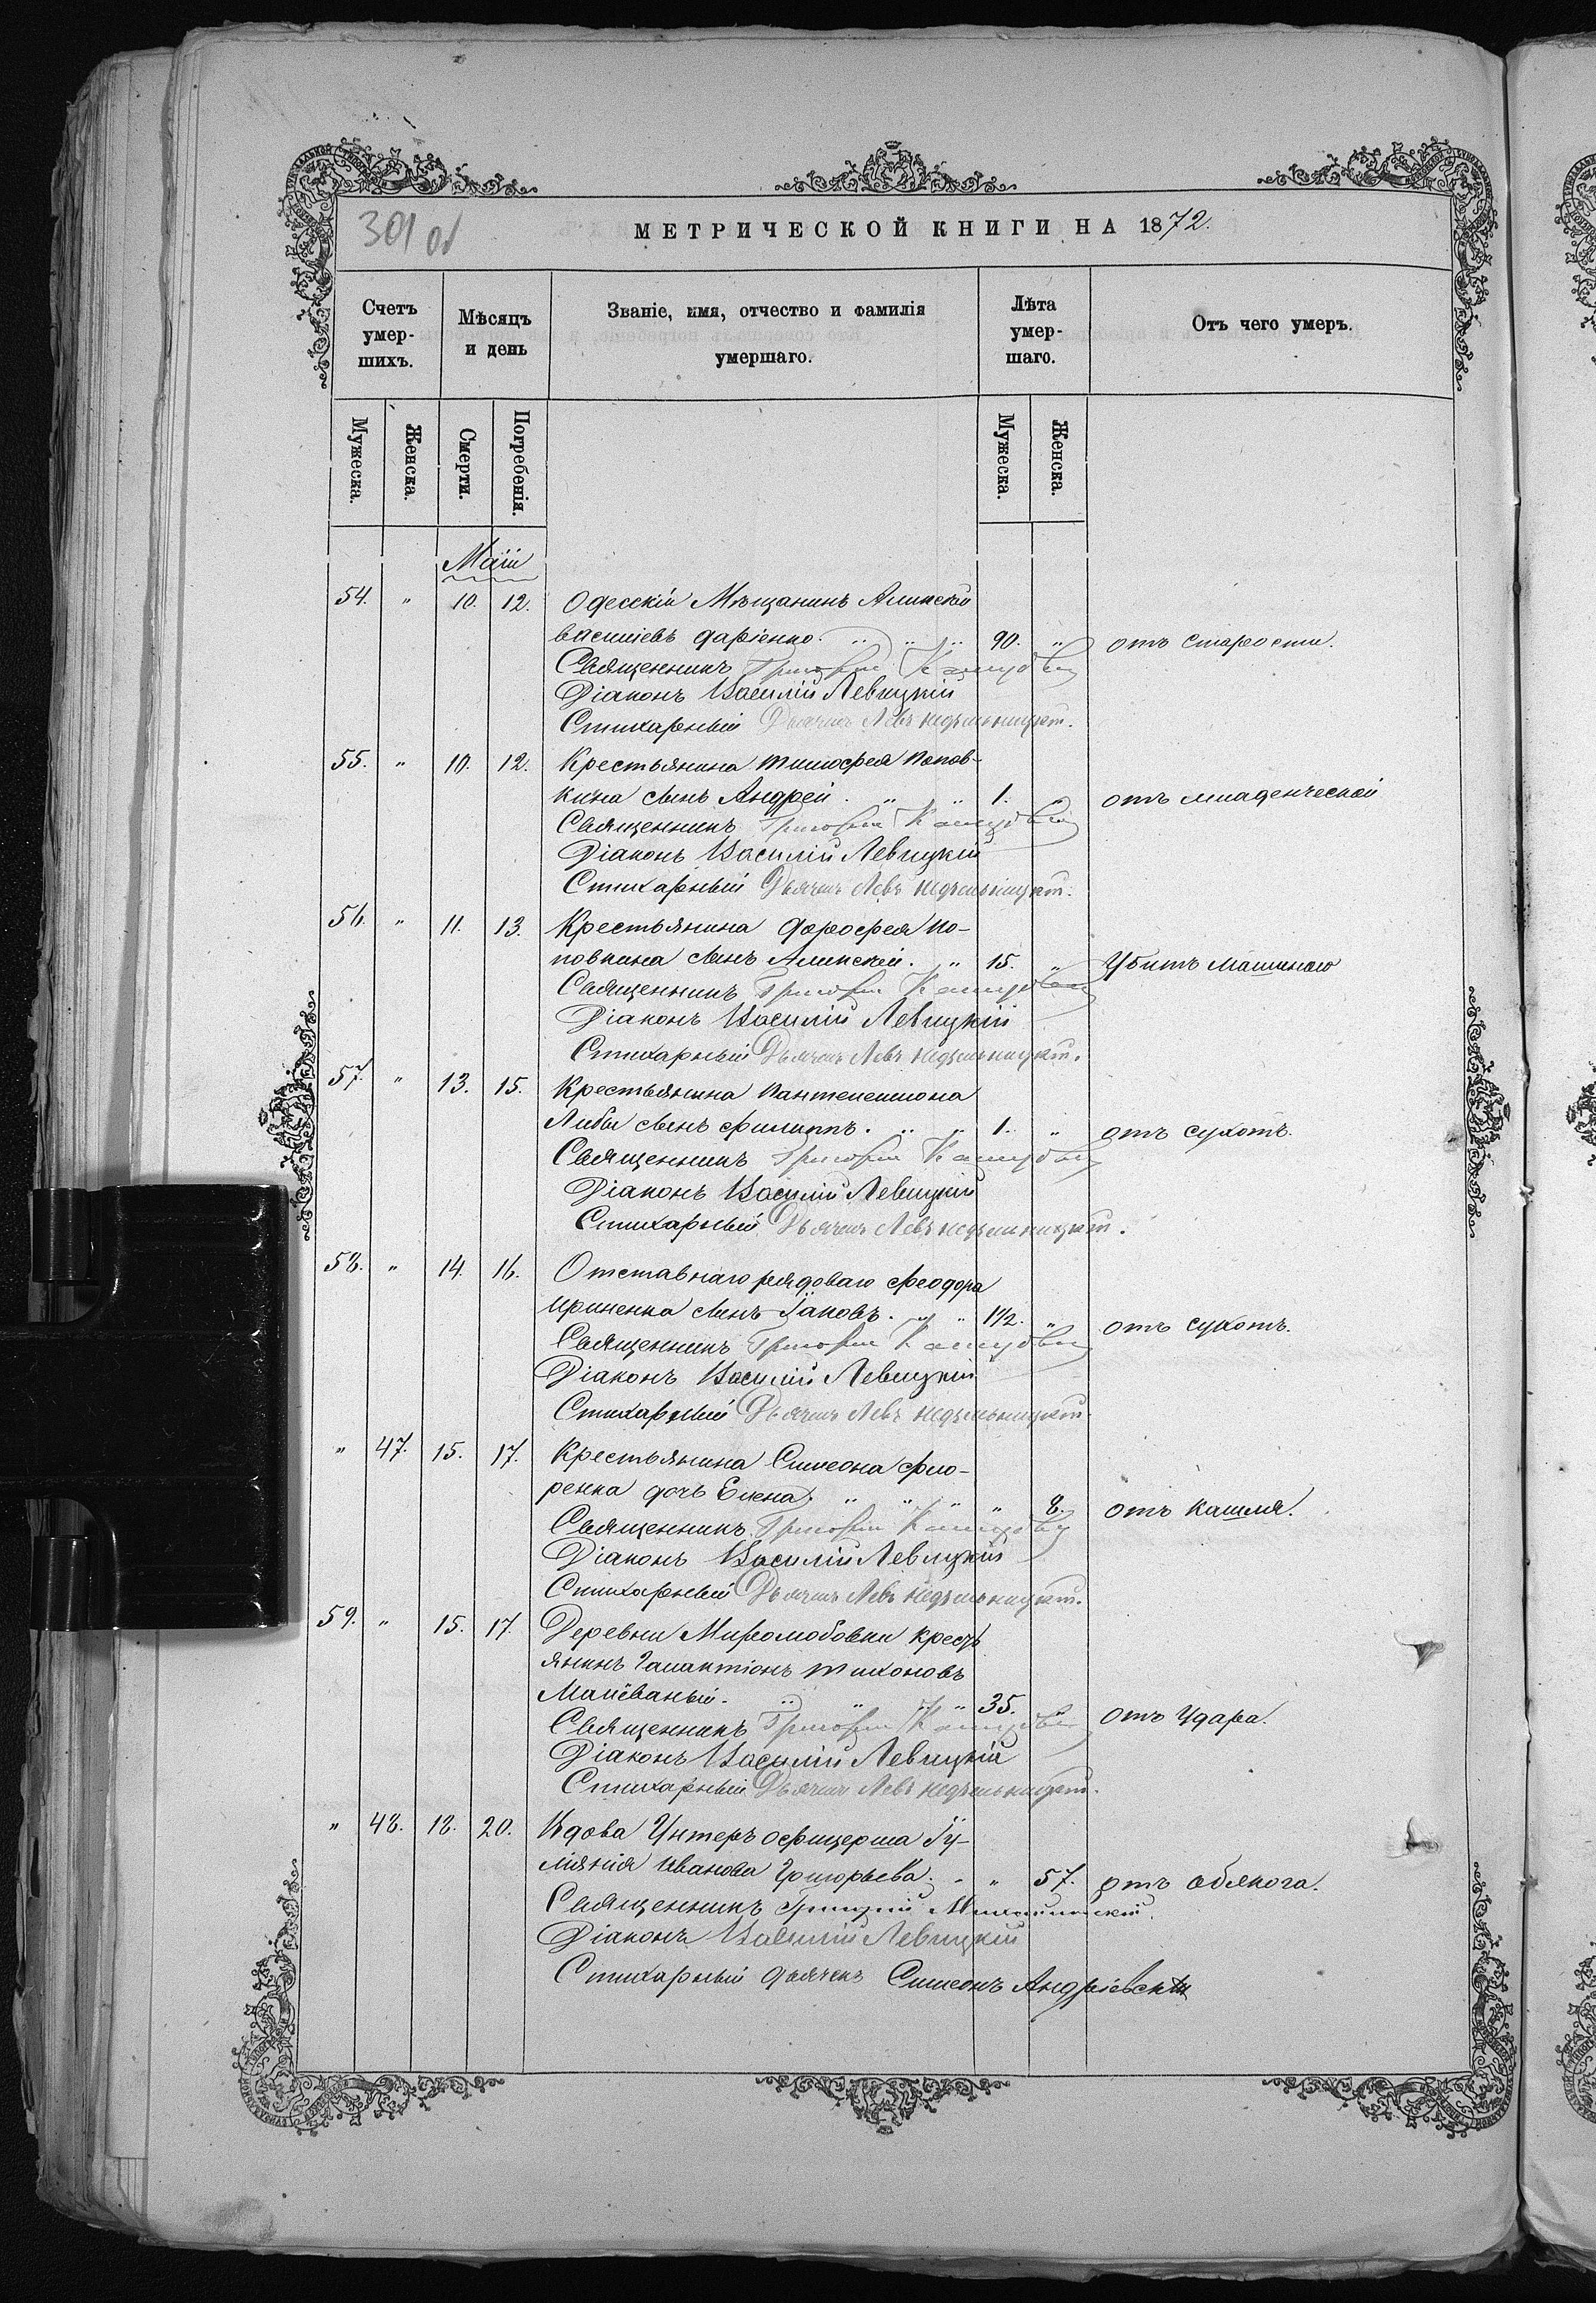 301 об
МЕТРИЧЕСКОЙ КНИГИ НА 1872.
Счетъ умер-шихъ.
Мѣсяцъ и день
Званіе, имя, отчество и фамилія умершаго.
Лѣта умер-шаго.
Отъ чего умеръ.
Мужеска. Женска. Смерти. Погребенія. Мужеска. Женска.
Маій
54. " 10. 12. Одесскій Мѣщанинъ Алексѣй
василіевъ даріенко. " " " 90. " отъ старости.
Священникъ Григорій
Діаконъ Василій Левицкій
Стихарный Дьячекъ Левъ недѣльницкій.
55. " 10. 12. Крестьянина тимофея попов-
кина сынъ Андрей. " " 1. " отъ младенческой
Священникъ Григорій
Діаконъ Василій Левицкій
Стихарный Дьячекъ Левъ недѣльницкій.
56. " 11. 13. Крестьянина дорофея по-
повкина сынъ Алексѣй. " 15. " Убитъ машиною
Священникъ Григорій
Діаконъ Василій Левицкій
Стихарный Дьячекъ Левъ недѣльницкій.
57. " 13. 15. Крестьянина пантелешмона
Либы сынъ филиппъ. " " 1. " отъ сухотъ.
Священникъ Григорій
Діаконъ Василій Левицкій
Стихарный Дьячекъ Левъ недѣльницкій.
58. " 14. 16. Отставнаго рядоваго феодора
ириненка сынъ Іаковъ. " " 1 1/2. " отъ сухотъ.
Священникъ Григорій
Діаконъ Василій Левицкій
Стихарный Дьячекъ Левъ недѣльницкій.
" 47. 15. 17. Крестьянина Симеона фло-
ренка дочь Елена. " " " " 8. отъ кашля.
Священникъ Григорій
Діаконъ Василій Левицкій
Стихарный Дьячекъ Левъ недѣльницкій.
59. " 15. 17. Деревни Миролюбовки кресть
янинъ Галактіонъ тихоновъ
Малёваный. " " " " 35. " отъ Удара.
Священникъ Григорій
Діаконъ Василій Левицкій
Стихарный Дьячекъ Левъ недѣльницкій.
" 48. 18. 20. Вдова Унтеръ офицерша Іу-
ліянія иванова Григорьева. " " 57. отъ обжога.
Священникъ
Діаконъ Василій Левицкій
Стихарный дьячекъ Симеонъ Андріевскій